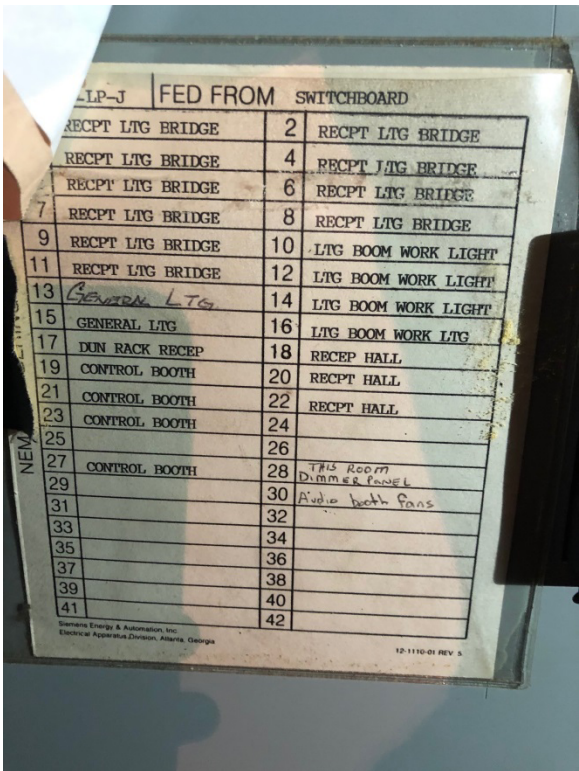 -LP-J FED FROM SWITCHBOARD
RECPT LTG BRIDGE 2 RECPT LTG BRIDGE
RECPT LTG BRIDGE 4 RECPT LTG BRIDGE
RECPT LTG BRIDGE 6 RECPT LTG BRIDGE
7 RECPT LTG BRIDGE 8 RECPT LTG BRIDGE
9 RECPT LTG BRIDGE 10 LTG BOOM WORK LIGHT
11 RECPT LTG BRIDGE 12 LTG BOOM WORK LIGHT
13 GENERAL LTG 14 LTG BOOM WORK LIGHT
15 GENERAL LTG 16 LTG BOOM WORK LTG
17 DUN RACK RECEP 18 RECEP HALL
19 CONTROL BOOTH 20 RECPT HALL
21 CONTROL BOOTH 22 RECPT HALL
23 CONTROL BOOTH 24
25 26
27 CONTROL BOOTH 28 THIS ROOM
DIMMER PANEL
29 30 Audio booth fans
31 32
33 34
35 36
37 38
39 40
41 42
NEMA
Siemens Energy & Automation, Inc.
Electrical Apparatus Division, Atlanta, Georgia
12-1110-01 REV 5